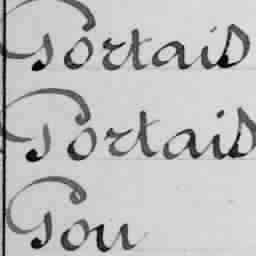 Portais
Portais
Pou